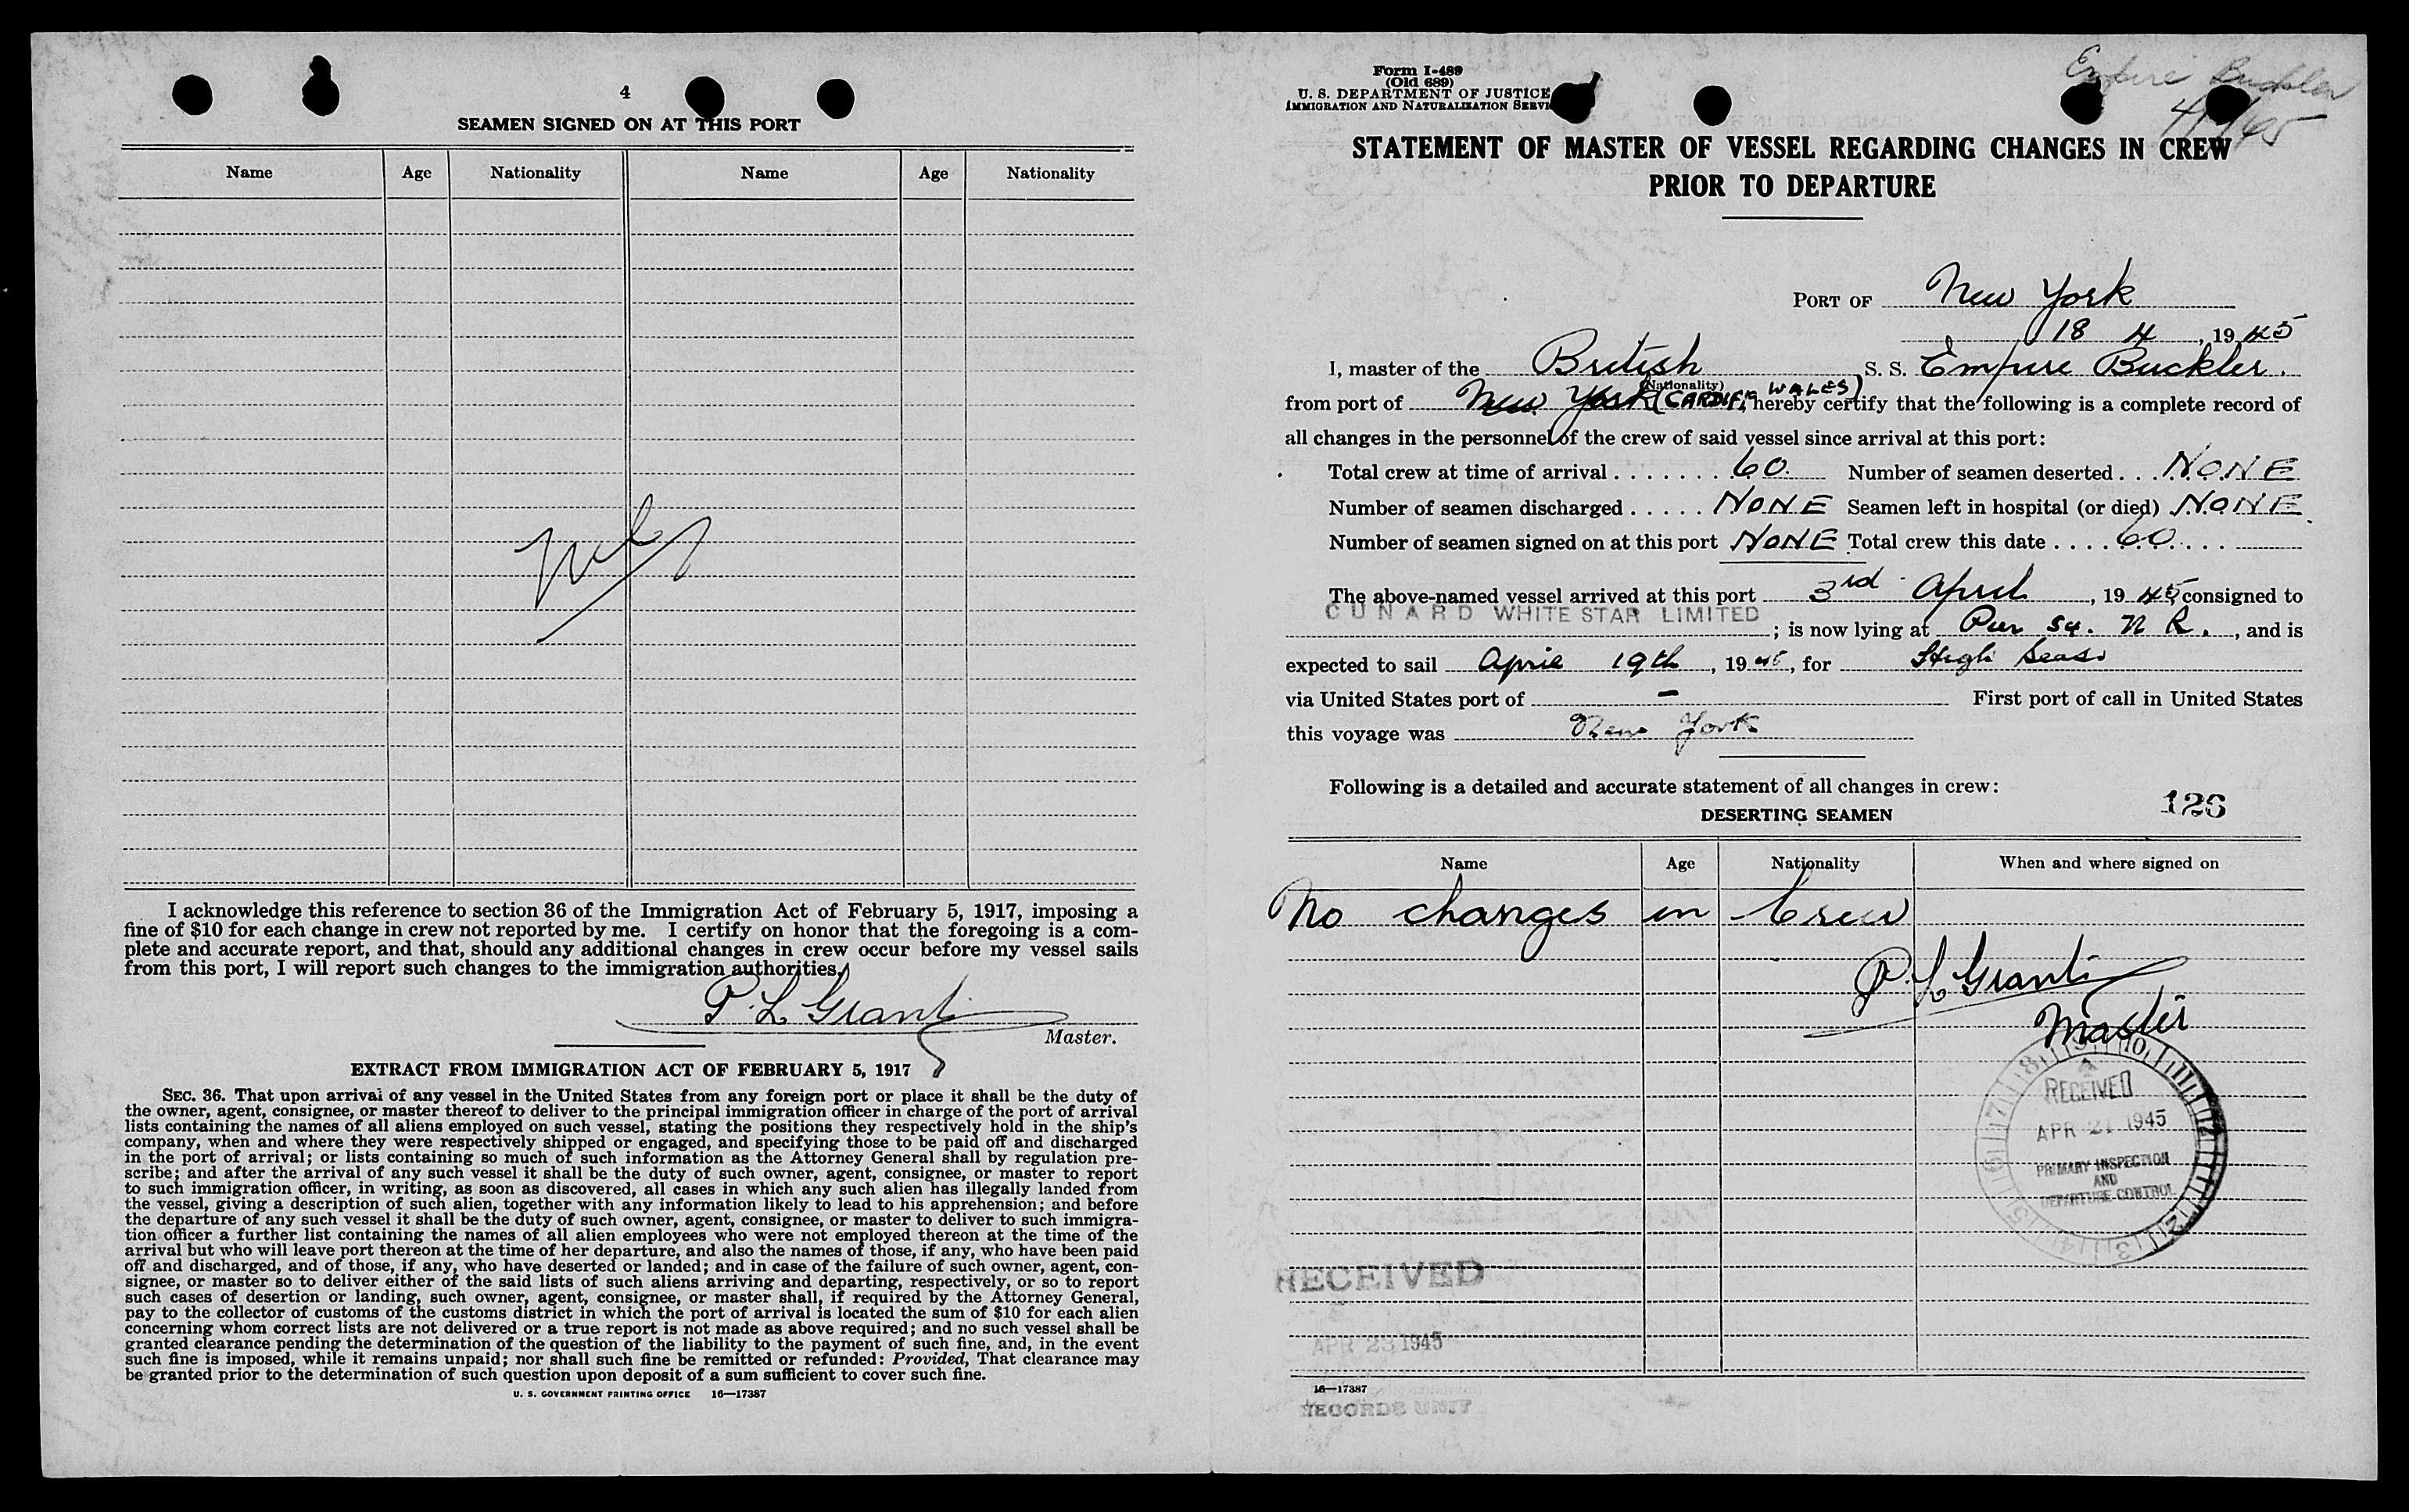 4
SEAMEN SIGNED ON AT THIS PORT
Name Age Nationality Name Age Nationality
Nil
I acknowledge this reference to section 36 of the Immigration Act of February 5, 1917, imposing a
fine of $10 for each change in crew not reported by me. I certify on honor that the foregoing is a com-
plete and accurate report, and that, should any additional changes in crew occur before my vessel sails
from this port, I will report such changes to the immigration authorities.
P. L Grant
Master.
EXTRACT FROM IMMIGRATION ACT OF FEBRUARY 5, 1917
SEC. 36. That upon arrival of any vessel in the United States from any foreign port or place it shall be the duty of
the owner, agent, consignee, or master thereof to deliver to the principal immigration officer in charge of the port of arrival
lists containing the names of all aliens employed on such vessel, stating the positions they respectively hold in the ship's
company, when and where they were respectively shipped or engaged, and specifying those to be paid off and discharged
in the port of arrival; or lists containing so much of such information as the Attorney General shall by regulation pre-
scribe; and after the arrival of any such vessel it shall be the duty of such owner, agent, consignee, or master to report
to such immigration officer, in writing, as soon as discovered, all cases in which any such alien has illegally landed from
the vessel, giving a description of such alien, together with any information likely to lead to his apprehension; and before
the departure of any such vessel it shall be the duty of such owner, agent, consignee, or master to deliver to such immigra-
tion officer a further list containing the names of all alien employees who were not employed thereon at the time of the
arrival but who will leave port thereon at the time of her departure, and also the names of those, if any, who have been paid
off and discharged, and of those, if any, who have deserted or landed; and in case of the failure of such owner, agent, con-
signee, or master so to deliver either of the said lists of such aliens arriving and departing, respectively, or so to report
such cases of desertion or landing, such owner, agent, consignee, or master shall, if required by the Attorney General,
pay to the collector of customs of the customs district in which the port of arrival is located the sum of $10 for each alien
concerning whom correct lists are not delivered or a true report is not made as above required; and no such vessel shall be
granted clearance pending the determination of the question of the liability to the payment of such fine, and, in the event
such fine is imposed, while it remains unpaid; nor shall such fine be remitted or refunded: Provided, That clearance may
be granted prior to the determination of such question upon deposit of a sum sufficient to cover such fine.
U. S. GOVERNMENT PRINTING OFFICE 16—17387
Form I-489
(Old 689)
U. S. DEPARTMENT OF JUSTICE
IMMIGRATION AND NATURALIZATION SERVI
Empire Buckler
STATEMENT OF MASTER OF VESSEL REGARDING CHANGES IN CREW
PRIOR TO DEPARTURE
PORT OF New York
18 4, 1945
I, master of the British S. S. Empire Buckler.
(Nationality)
from port of New York (CARDIFF, WALES) hereby certify that the following is a complete record of
all changes in the personnel of the crew of said vessel since arrival at this port:
Total crew at time of arrival ........ 60. Number of seamen deserted ... NONE
Number of seamen discharged ..... NONE Seamen left in hospital (or died) NONE
Number of seamen signed on at this port NONE Total crew this date .... 60 ....
The above-named vessel arrived at this port 3rd April, 1945, consigned to
CUNARD WHITE STAR LIMITED; is now lying at Pier 54. N R., and is
expected to sail April 19th, 1945, for High Seas
via United States port of - First port of call in United States
this voyage was New York
Following is a detailed and accurate statement of all changes in crew:
126
DESERTING SEAMEN
Name Age Nationality When and where signed on
No changes in Crew
P. L Grant
Master
RECEIVED
APR 21 1945
PRIMARY INSPECTION
AND
DEPARTURE CONTROL
RECEIVED
APR 23 1945
16—17387
RECORDS UNIT